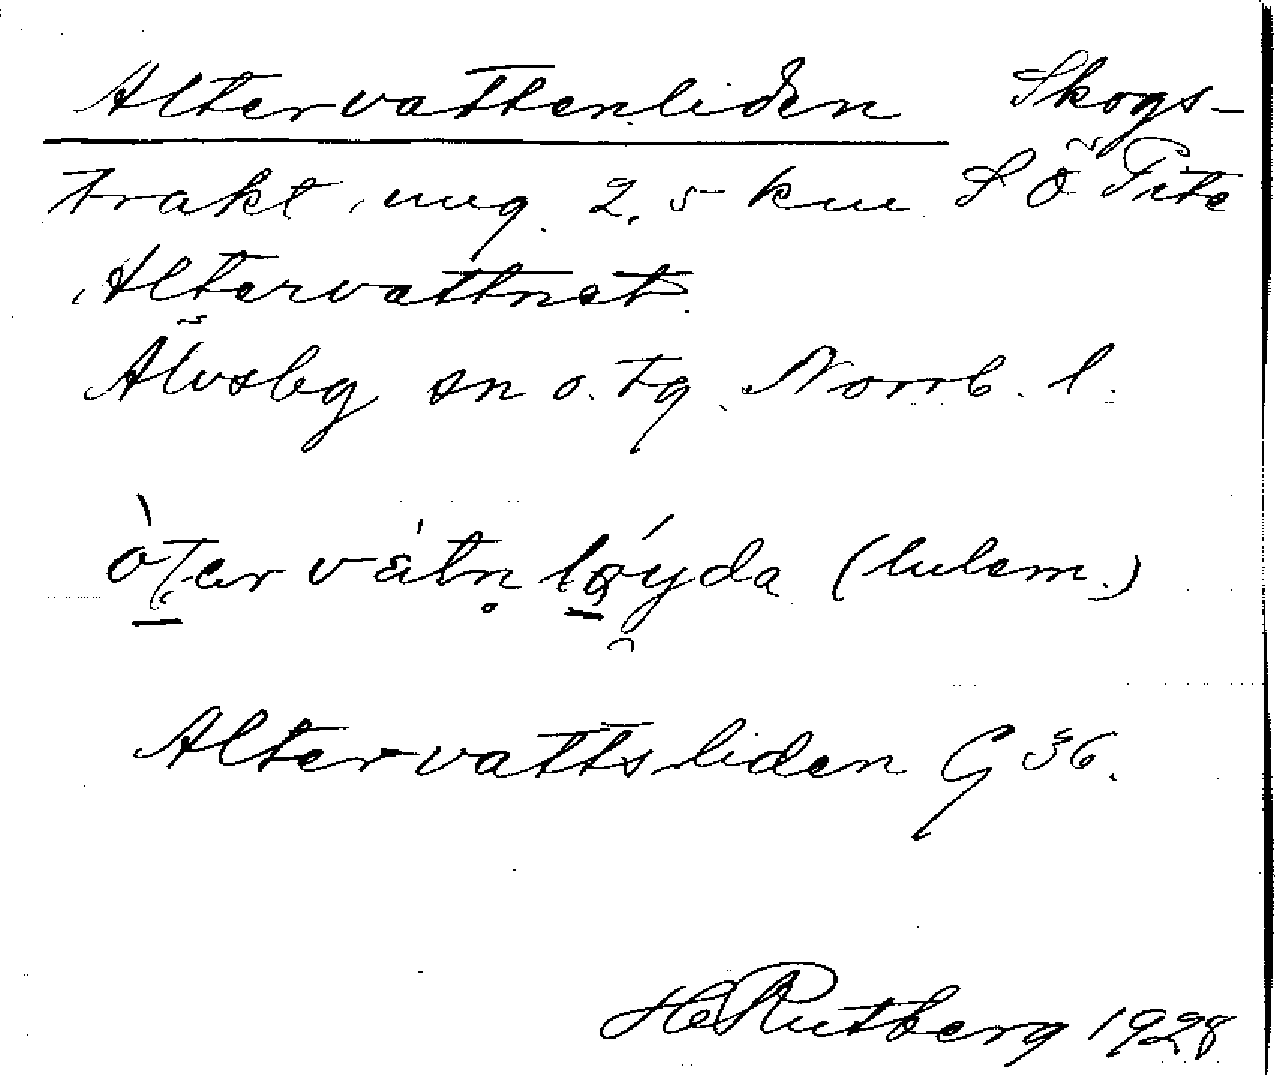 Altervattenliden Skogs-
trakt, ung. 2,5 km SÖ Pite
Altervattnet.
Älvsby sn o. tg. Norrb. l.
òtervàtn løyda (lulem.)
Altervattsliden G 36.
H Rutberg 1928